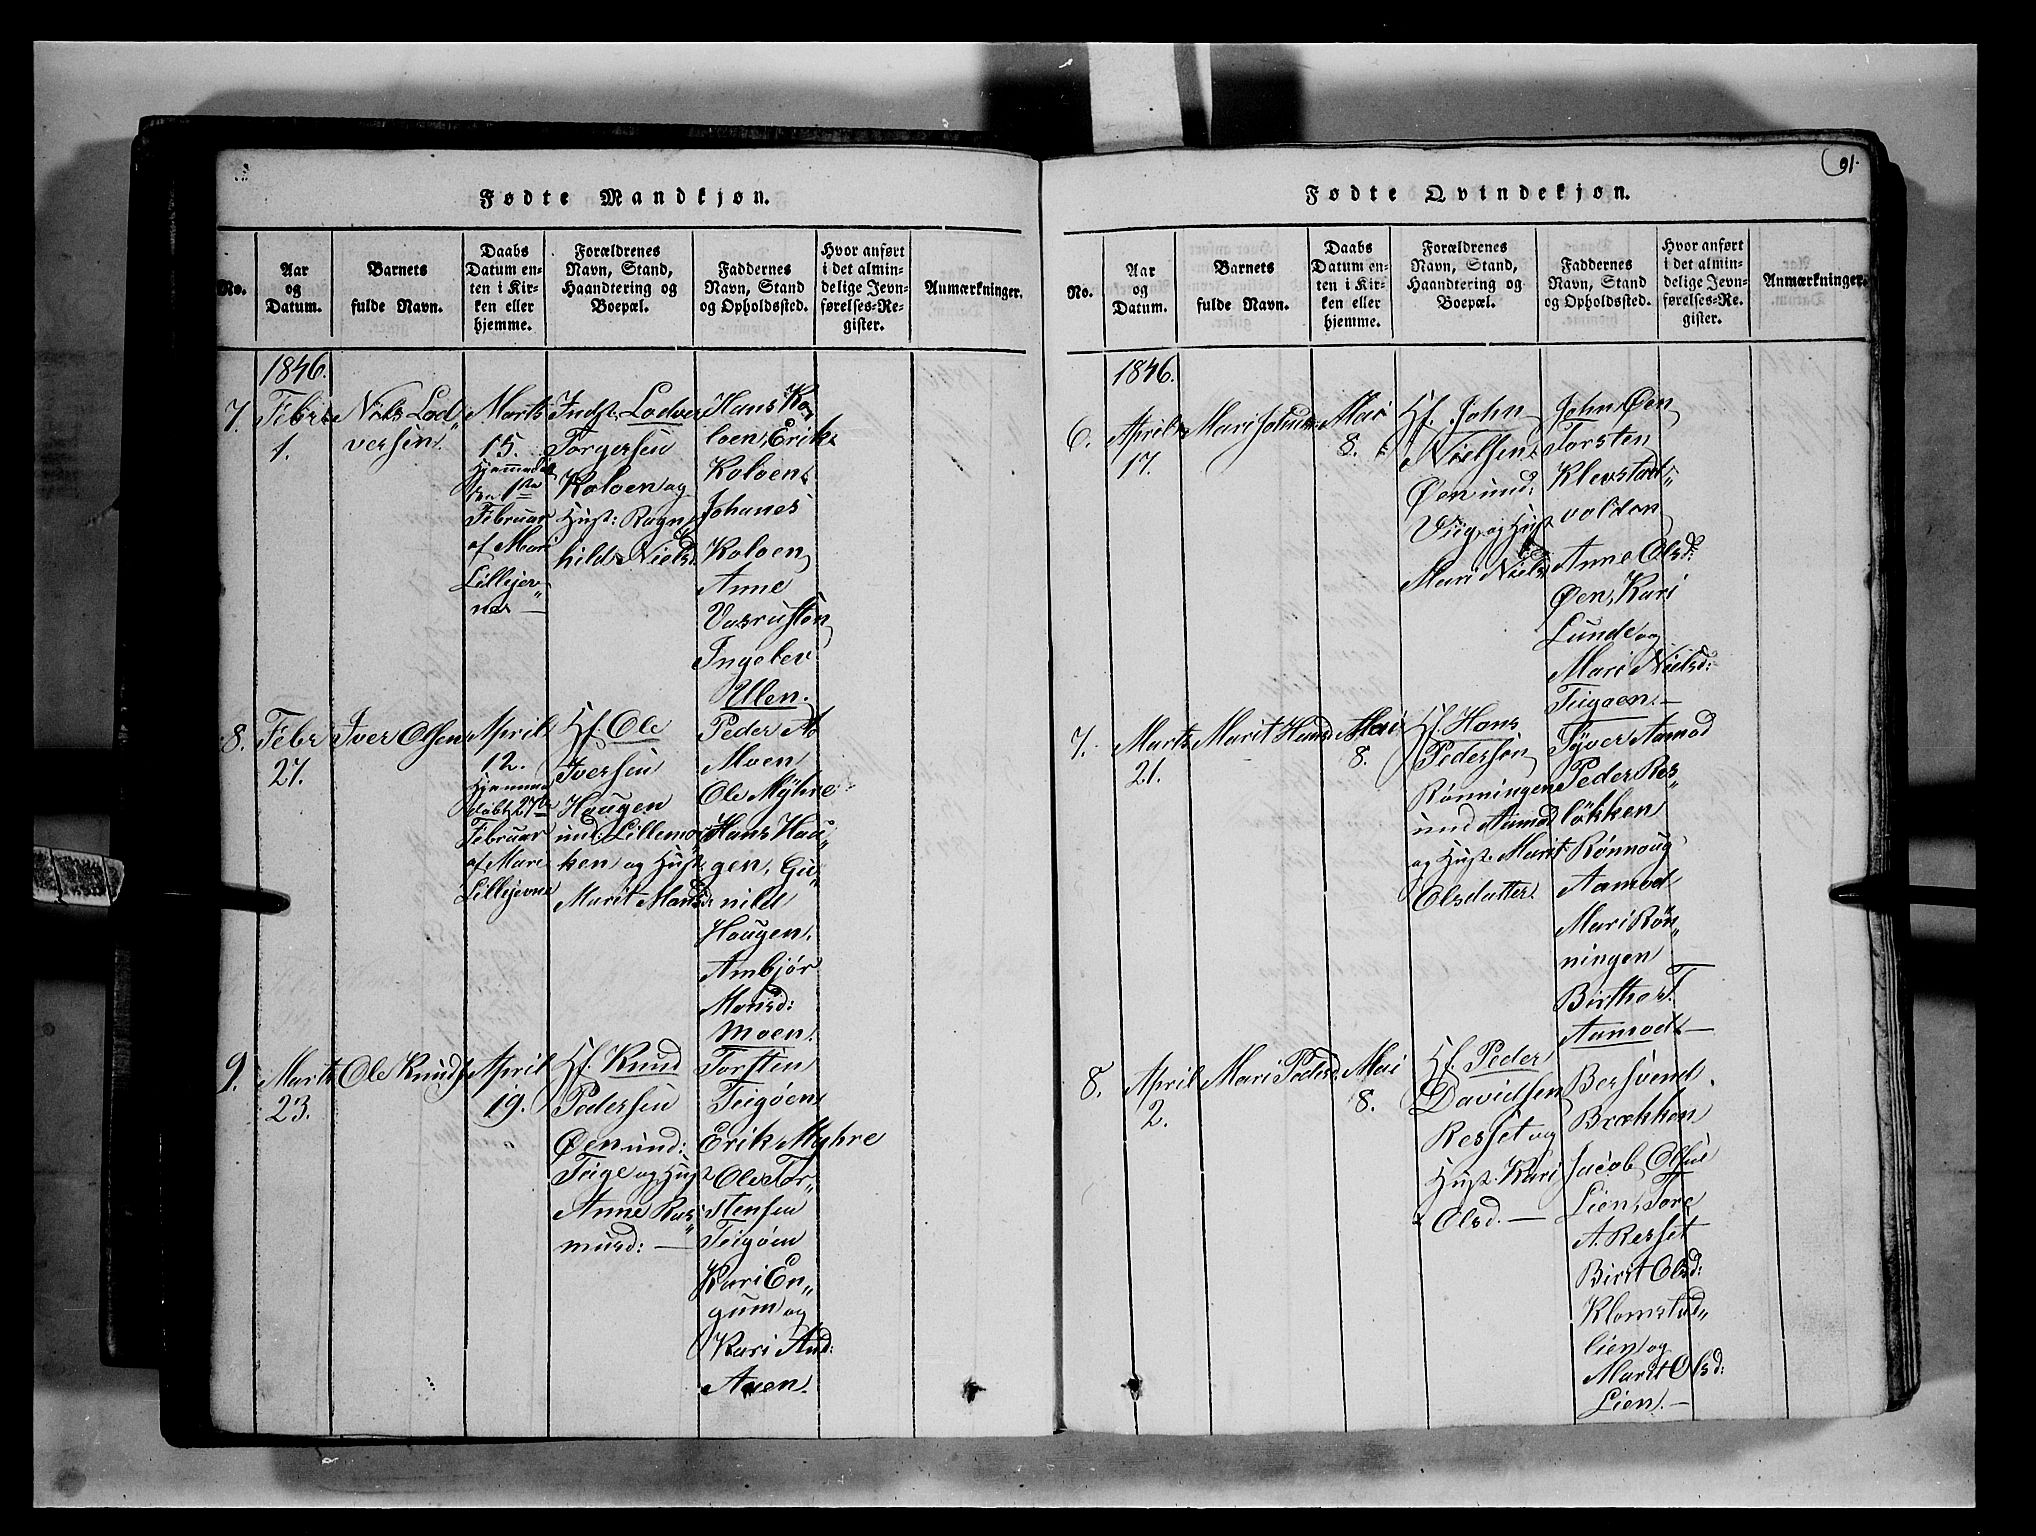 91.
Fødte Mandkjøn.
No.
Aar
og
Datum.
Barnets
fulde Navn.
Daabs
Datum en-
ten i Kir-
ken eller
hjemme.
Forældrenes
Navn, Stand,
Haandtering og
Boepæl.
Faddernes
Navn, Stand
og Opholdssted.
Hvor anført
i det almin-
delige Jevn-
førelses-Re-
gister.
Anmærkninger.
1846.
7.
Febr
1.
Niels Lod„
versen.
Marts
15.
Hjemmedøbt
den 1ste
Februar
af Mari
Lillejev„
nes —
Indst. Lodver
Torgersen
Koloen og
Hust: Ragn„
hild Nielsd:
Hans Ko„
loen, Erik
Koloen
Johanes
Koloen
Anne
Vasrusten
Ingelev
Ulen.
8.
Febr
27.
Iver Olsen
April
12.
Hjemme
døbt 27de
Februar
af Mare
Lillejevne
Hf. Ole
Iversen
Haugen
und: Lillemo„
ken og Hust
Marit Hansd:
Peder A
Moen
Ole Myhre
Hans Hau„
gen, Gu„
nild
Haugen,
Ambjør
Monsd:
Moen.
9.
Marts
23.
Ole Knuds
April
19.
Hf. Knud
Pedersen
Øen und:
Teige og Hust
Anne Ras„
musd: —
Torsten
Teigøen
Erik Myhre
Ole Tor„
stensen
Teigøen
Kari En„
gum og
Kari And:
Auen.
Fødte Qvindekjøn.
No.
Aar
og
Datum.
Barnets
fulde Navn.
Daabs
Datum en-
ten i Kir-
ken eller
hjemme.
Forældrenes
Navn, Stand,
Haandtering og
Boepæl.
Faddernes
Navn, Stand
og Opholdssted.
Hvor anført
i det almin-
delige Jevn-
førelses-Re-
gister.
Anmærkninger.
1846.
6.
April
17.
Mari Johns
Mai
8.
Hf. John
Nielsen
Øen und:
Viig og Hust
Mari Nielsd
John Øen
Torsten
Klevstad„
valden
Anne Olsd:
Øen, Kari
Lunde og
Mari Nielsd:
Teigoen.—
7.
Marts
21.
Marit Hansd
Mai
8.
Hf. Hans
Pedersen
Rønningen
und Aamod
og Hust. Marit
Olsdatter.
Syver Aamod
Peder Røs„
løkken
Rønnoug
Aamod
Mari Røn„
ningen
Birthe T.
Aamod.—
8.
April
2.
Mari Pedersd
Mai
8.
Hf. Peder
Davidsen
Resset og
Hust. Kari
Olsd. —
Bersvend
Brækken
Jacob Olsen
Lien, Tore
A. Resset
Birit Olsd:
Klomstad„
lien og
Marit Olsd:
Lien.—